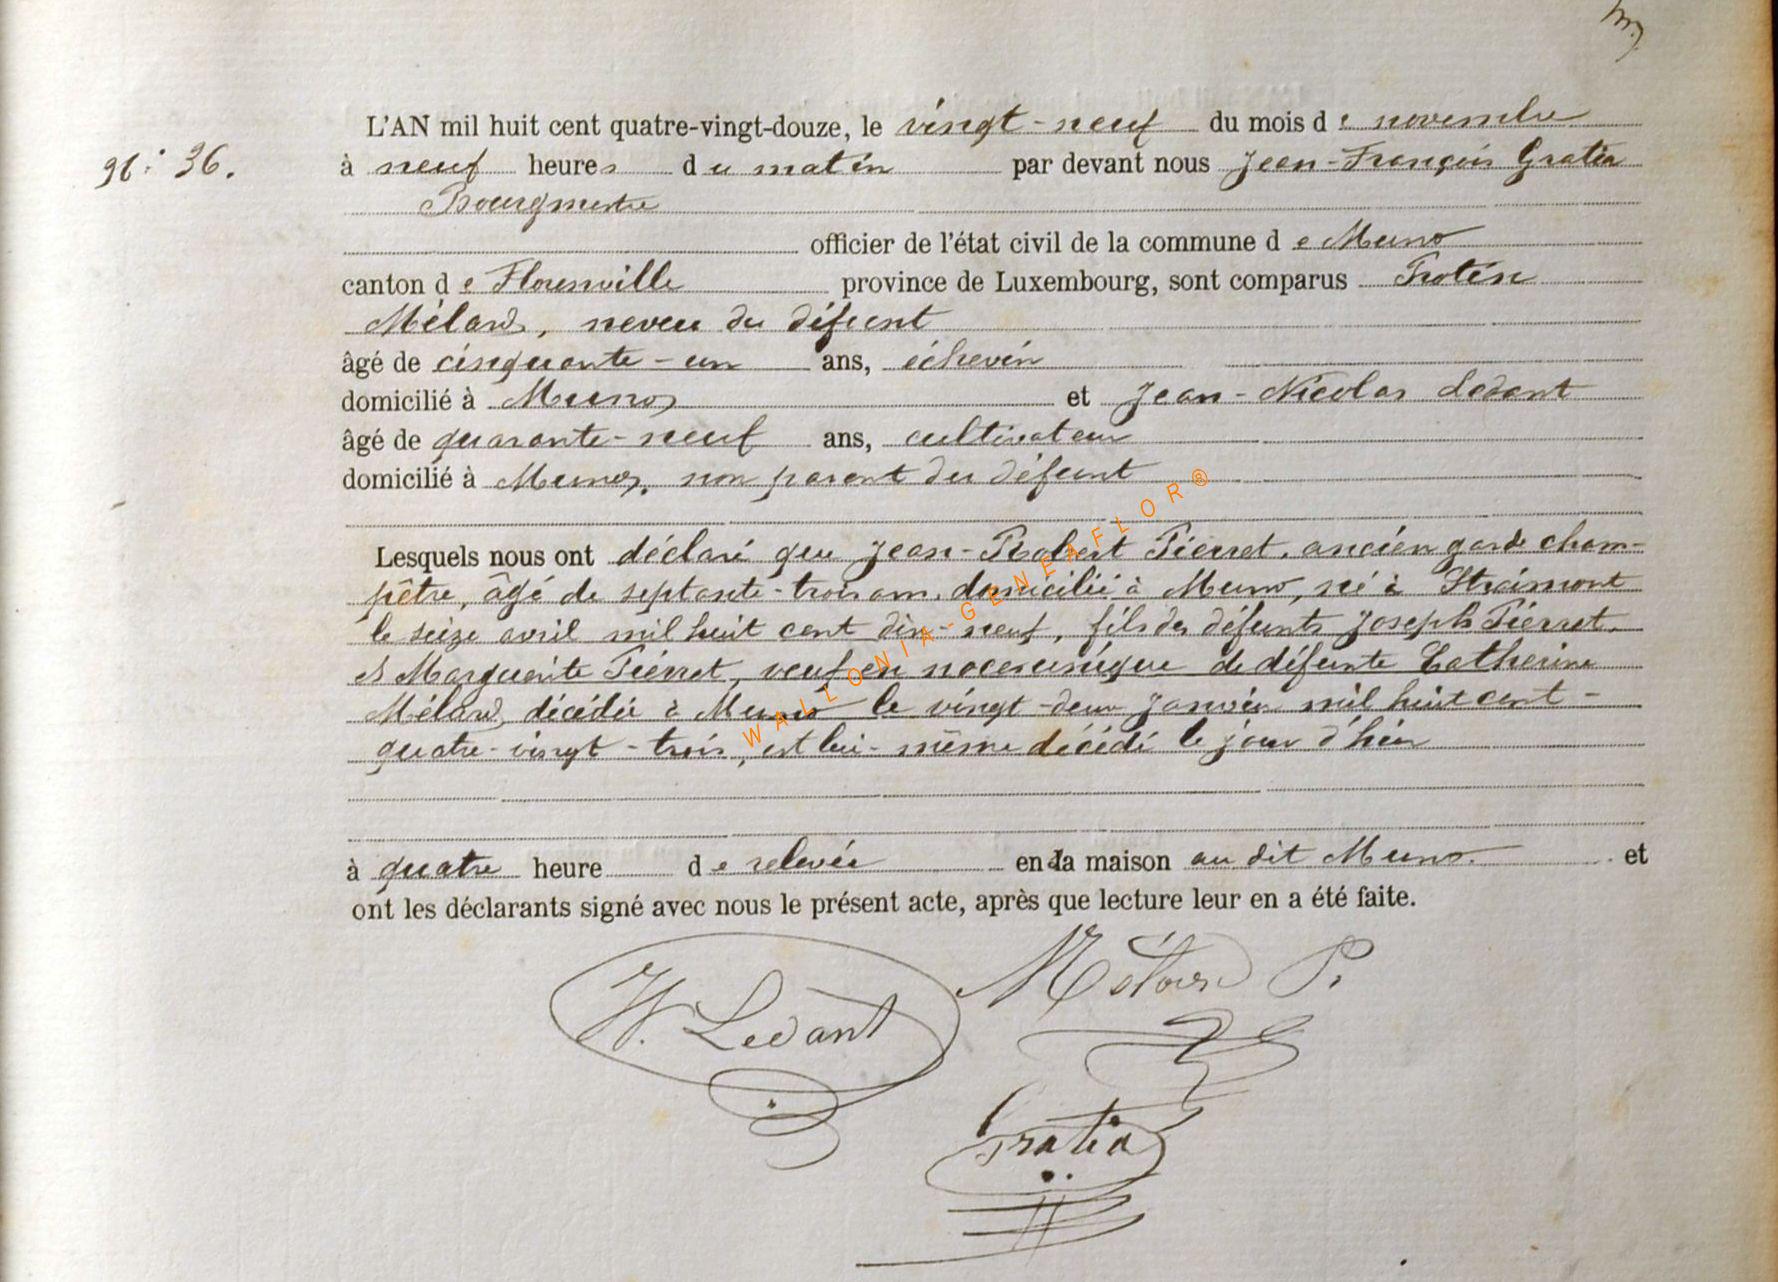 L'AN mil huit cent quatre-vingt-douze, le vingt-neuf du mois de novembre
N° 36.
à neuf heures du matin par devant nous Jean-François Gratia
Bourgmestre
officier de l'état civil de la commune de Muno
canton de Florenville province de Luxembourg, sont comparus Protin
Mélard, neveu du défunt
âgé de cinquante-un ans, échevin
domicilié à Muno, et Jean-Nicolas Ledant
âgé de quarante-neuf ans, cultivateur
domicilié à Muno, non parent du défunt
Lesquels nous ont déclaré que Jean-Robert Pierret, ancien garde cham-
pêtre, âgé de septante-trois ans, domicilié à Muno, né à Straimont
le seize avril mil huit cent dix-neuf, fils des défunts Joseph Pierret
et Marguerite Pierret, veuf en noces unique de défunte Catherine
Mélard, décédée à Muno le vingt-deux janvier mil huit cent-
quatre-vingt-trois, est lui-même décédé le jour d'hier
à quatre heure de relevée en la maison au dit Muno. et
ont les déclarants signé avec nous le présent acte, après que lecture leur en a été faite.
Mélard P.
N. Ledant
Gratia
WALLONIA-GENEAFLOR®